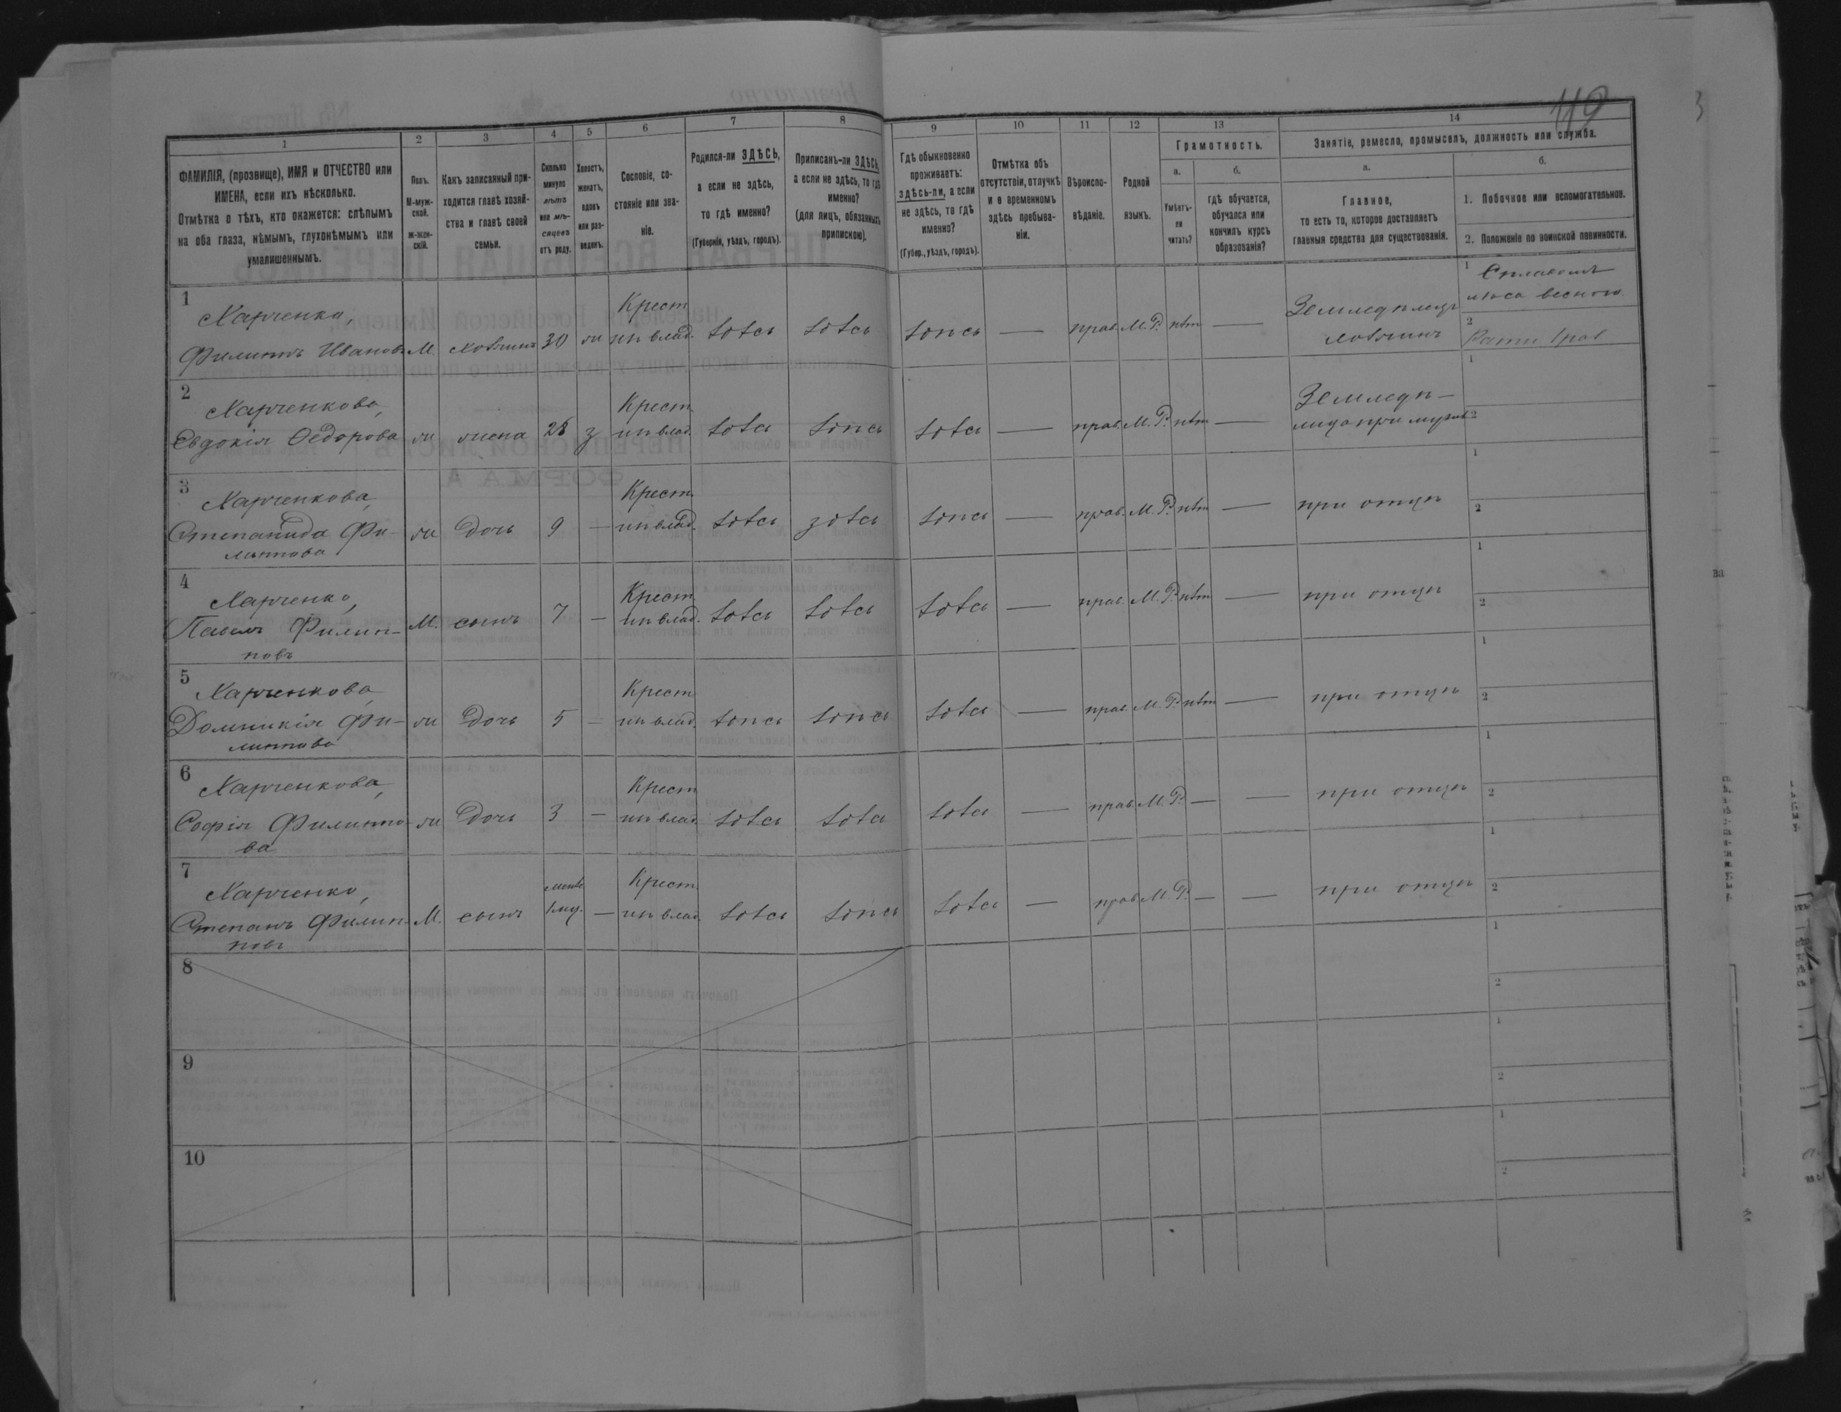 119
3
1
2
3
4
5
6
7
8
9
10
11
12
13
14
ФАМИЛІЯ, (прозвище), ИМЯ и ОТЧЕСТВО или
ИМЕНА, если ихъ нѣсколько.
Отмѣтка о тѣхъ, кто окажется: слѣпымъ
на оба глаза, нѣмымъ, глухонѣмымъ или
умалишеннымъ.
Полъ.
М-муж-
ской.
Ж-жен-
скій.
Какъ записанный при-
ходится главѣ хозяй-
ства и главѣ своей
семьи.
Сколько
минуло
лѣтъ
или мѣ-
сяцевъ
отъ роду.
Холостъ,
женатъ,
вдовъ
или раз-
веденъ.
Сословіе, со-
стояніе или зва-
ніе.
Родился-ли ЗДѢСЬ,
а если не здѣсь,
то гдѣ именно?
(Губернія, уѣздъ, городъ).
Приписанъ-ли ЗДѢСЬ,
а если не здѣсь, то гдѣ
именно?
(для лицъ, обязанныхъ
припискою).
Гдѣ обыкновенно
проживаетъ:
здѣсь-ли, а если
не здѣсь, то гдѣ
именно?
(Губер., уѣздъ, городъ).
Отмѣтка объ
отсутствіи, отлучкѣ
и о временномъ
здѣсь пребыва-
ніи.
Вѣроиспо-
вѣданіе.
Родной
языкъ.
Грамотность.
а.
Умѣетъ-
ли
читать?
б.
гдѣ обучается,
обучался или
кончилъ курсъ
образованія?
Занятіе, ремесло, промыселъ, должность или служба.
а.
Главное,
то есть то, которое доставляетъ
главныя средства для существованія.
б.
1. Побочное или вспомогательное.
2. Положеніе по воинской повинности.
1
Харченко,
Филиппъ Ивановъ М. хозяинъ 30 ж Крест. из влад. здѣсь здѣсь здѣсь — прав. М.Р. нѣтъ — Земледѣлецъ хозяинъ
1
2
2
Харченкова,
Евдокія Федорова ж жена 28 з Крест. из влад. здѣсь здѣсь здѣсь — прав. М.Р. нѣтъ —
1
2
3
Харченкова,
Степанида Фи-
липпова ж дочь 9 — Крест. из влад. здѣсь здѣсь здѣсь — прав. М.Р. нѣтъ — при отцѣ
1
2
4
Харченко,
Павелъ Филип-
повъ М. сынъ 7 — Крест. из влад. здѣсь здѣсь здѣсь — прав. М.Р. нѣтъ — при отцѣ
1
2
5
Харченкова,
Домникія Фи-
липпова ж дочь 5 — Крест. из влад. здѣсь здѣсь здѣсь — прав. М.Р. нѣтъ — при отцѣ
1
2
6
Харченкова,
Софія Филиппо-
ва ж дочь 3 — Крест. из влад. здѣсь здѣсь здѣсь — прав. М.Р. — — при отцѣ
1
2
7
Харченко,
Степанъ Филип-
повъ М. сынъ — Крест. из влад. здѣсь здѣсь здѣсь — прав. М.Р. — — при отцѣ
1
2
8
1
2
9
1
2
10
1
2